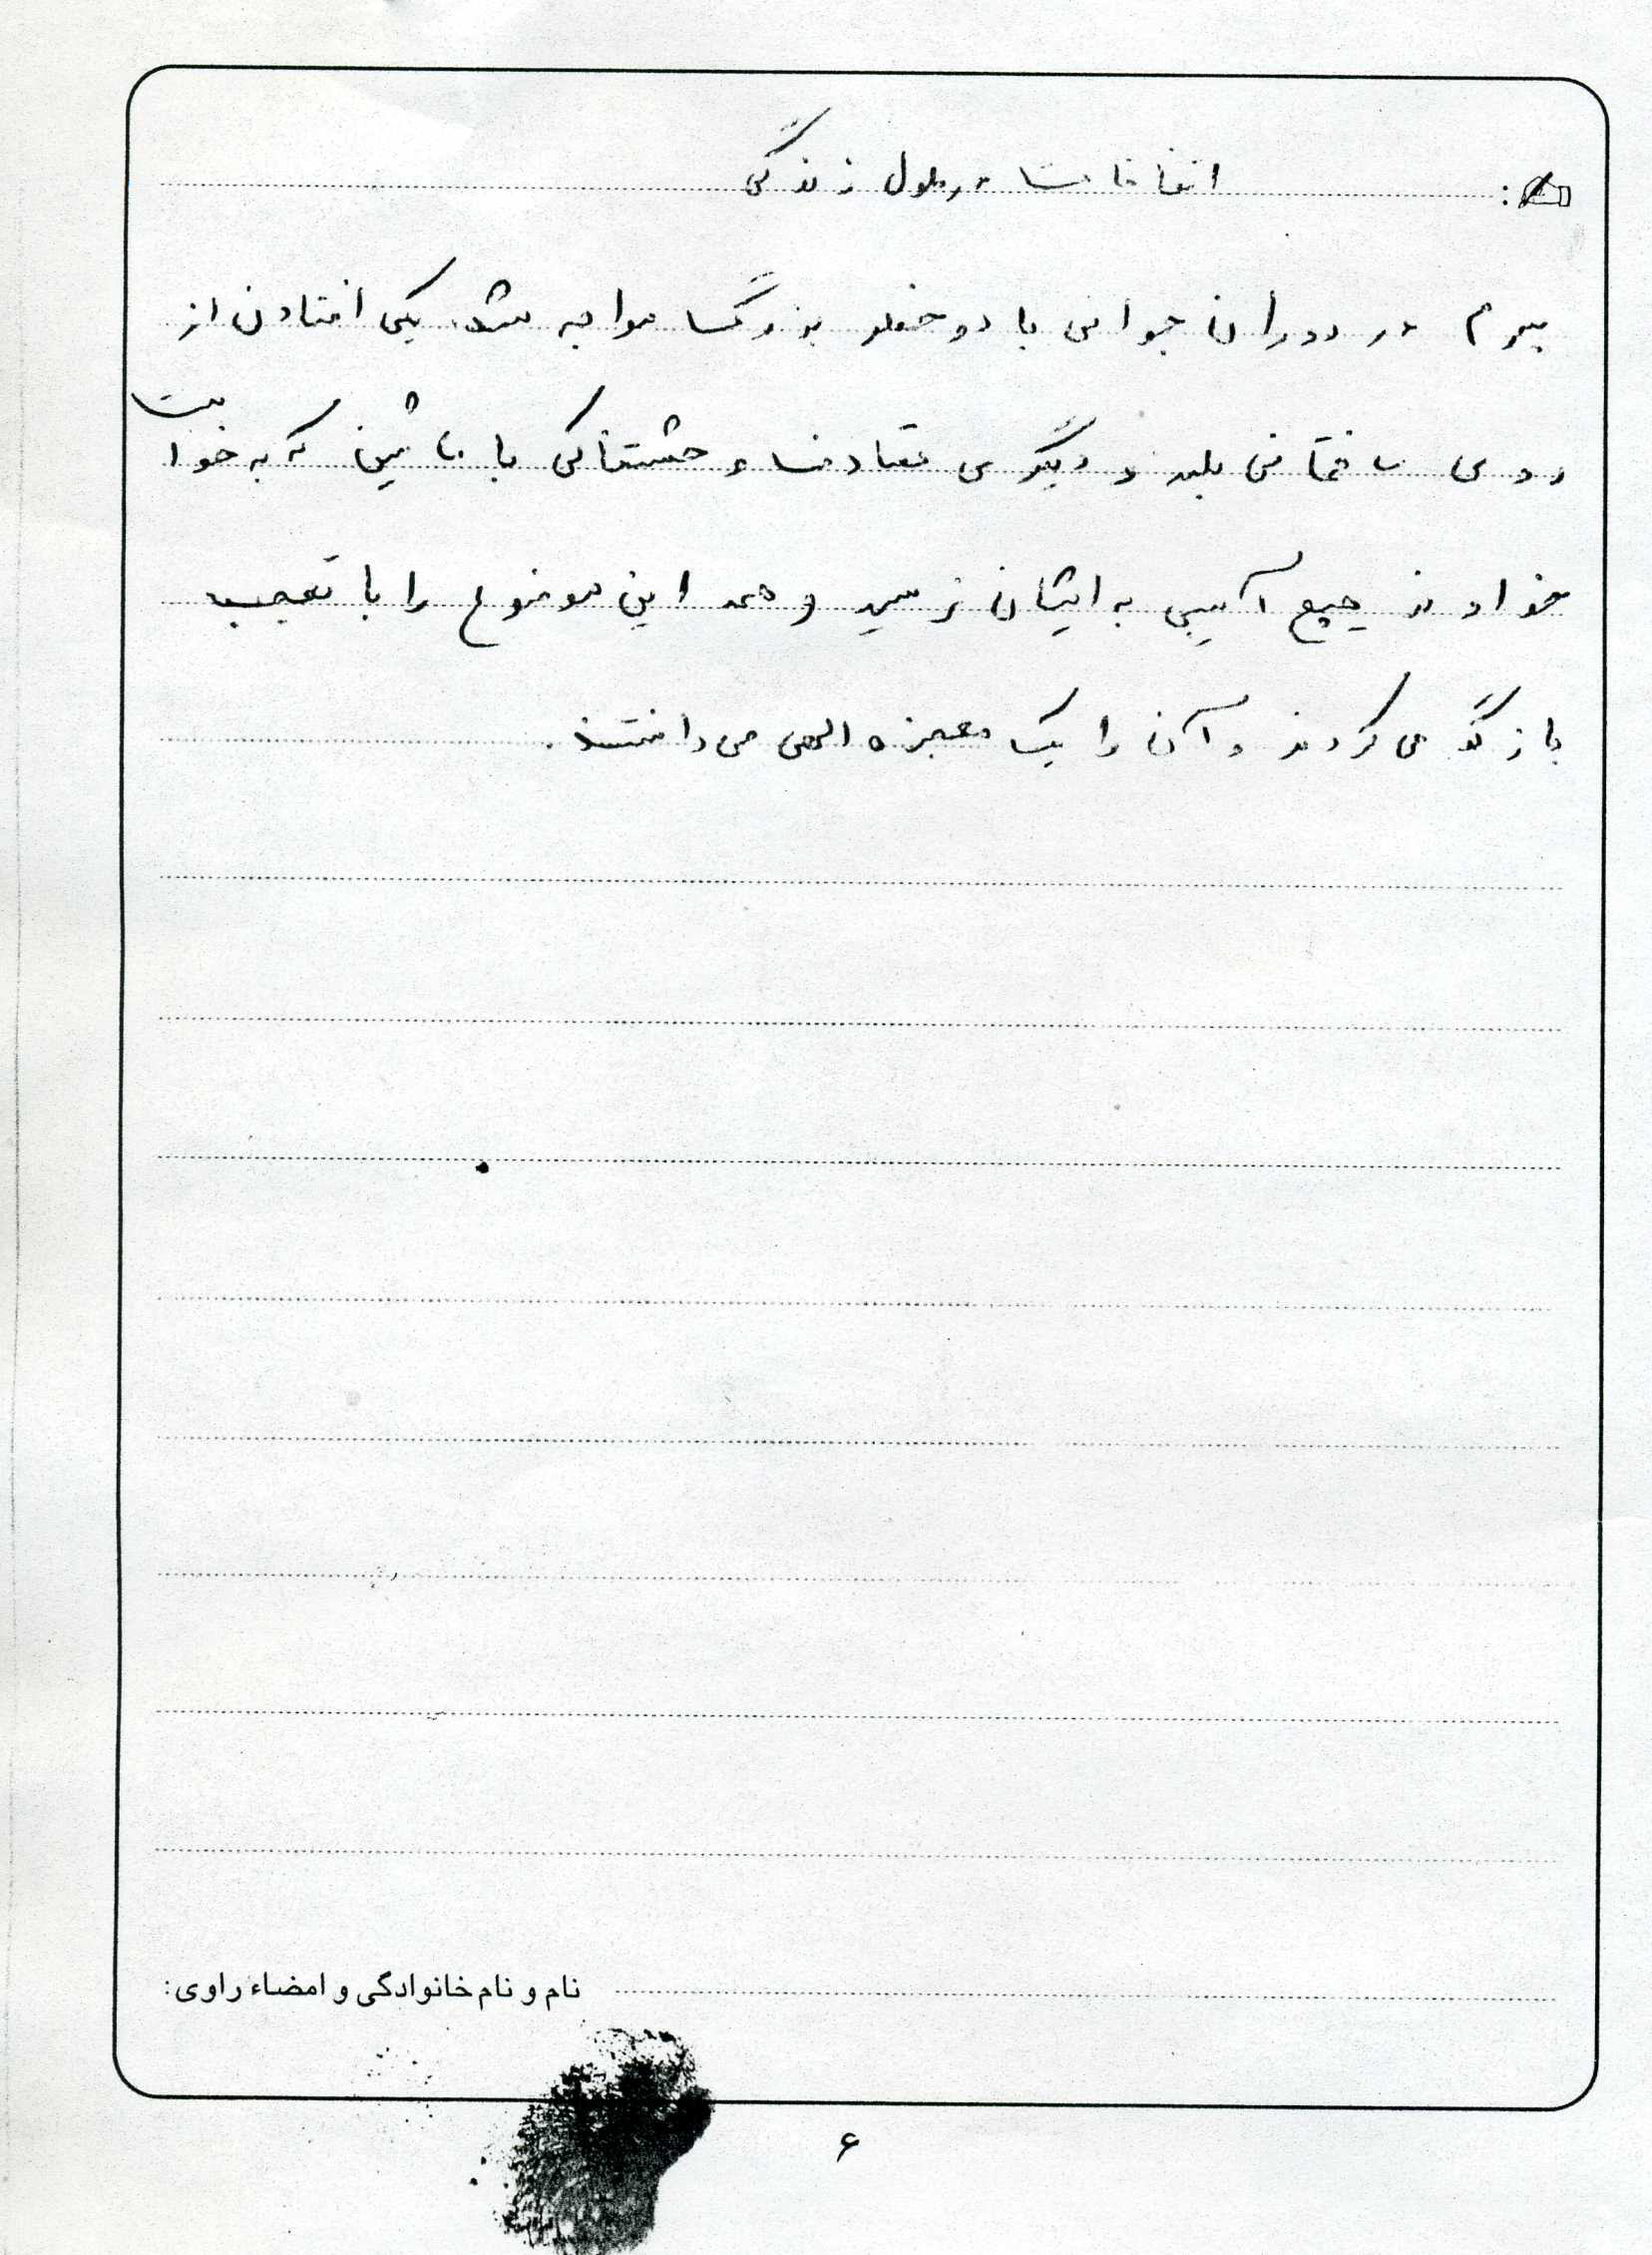 اتفاقات در طول زندگی
پسرم در دوران جوانی با دو خطر بزرگ مواجه شد. یکی افتادن از
روی ساختمانی بلند و دیگری تصادف وحشتناکی با ماشین که به خواست
خداوند هیچ آسیبی به ایشان نرسید و همه این موضوع را با تعجب
بازگو می کردند و آن را یک معجزه الهی می دانستند.
نام و نام خانوادگی و امضاء راوی:
۶